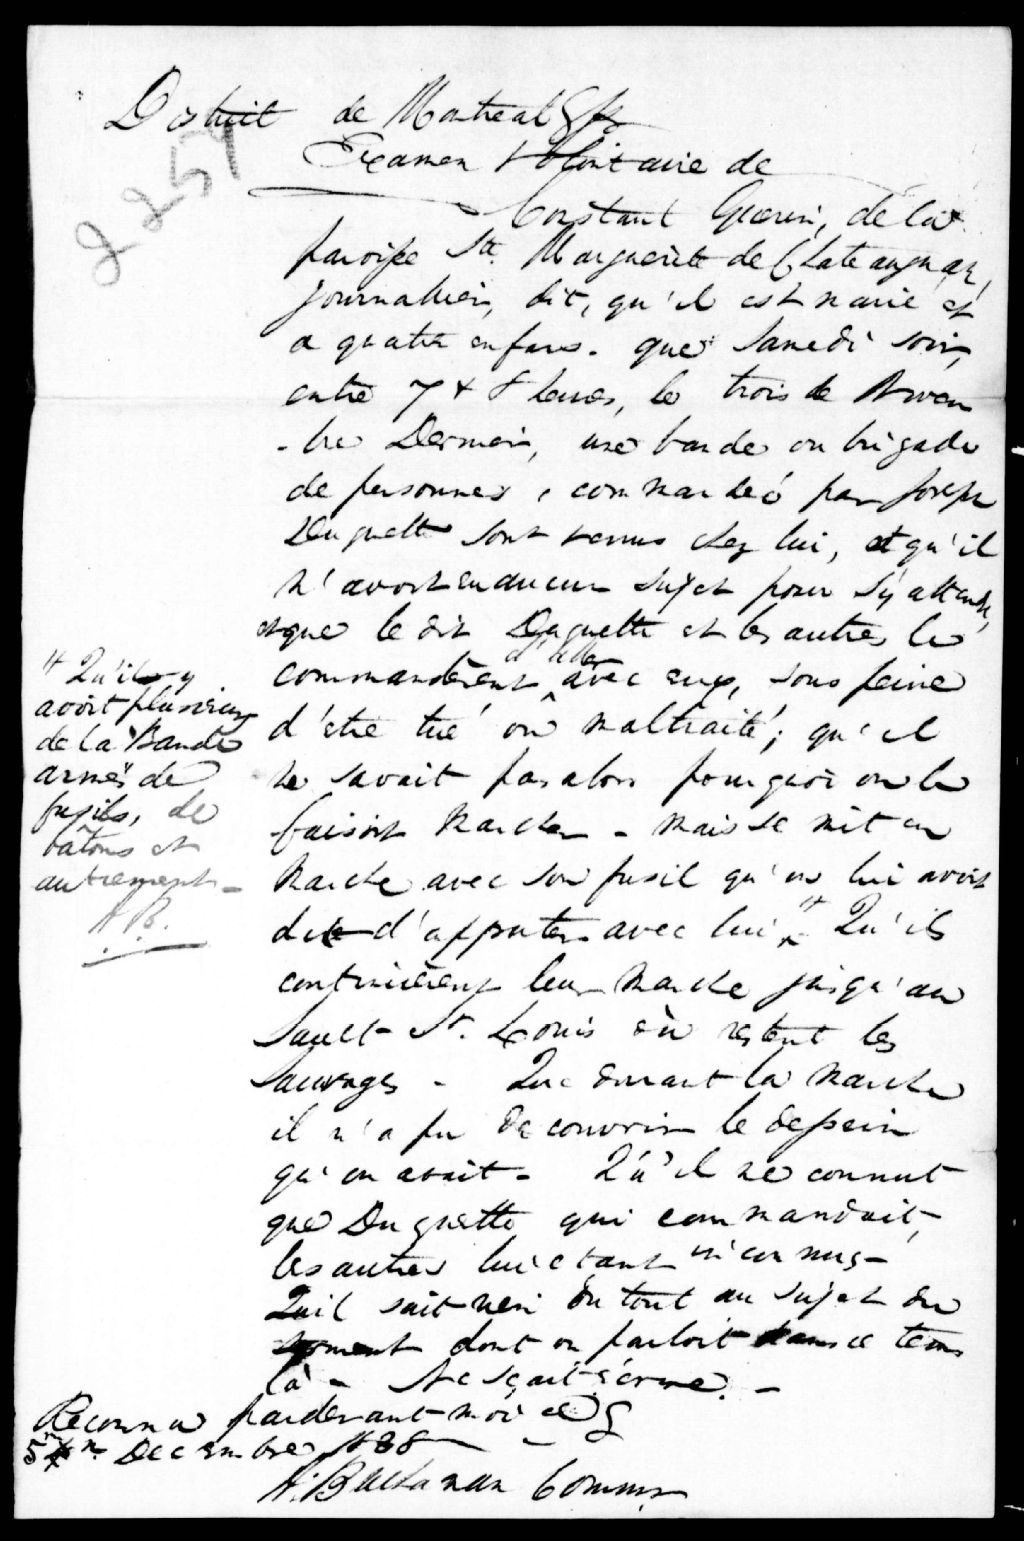 District de Montreal
2259
Examen Volontaire de
Constant Guerin, de la
paroisse Ste. Marguerite de Chateauguay,
journallier, dit, qu'il est marié et
a quatre enfans. que Samedi soir,
entre 7 & 8 heures, le trois de Novem
-bre Dernier, une bande ou brigade
de personnes, commandeé par Joseph
Duquette sont venus chez lui, et qu'il
n'avoit en aucun sujet pour s'y attendre,
et que le dit Duquette et les autres le
commandèrent d'aller avec eux, sous peine
d'être tué ou maltraité; qu'il
ne savait pas alors pourquoi on le
faisoit marcher - mais se mit en
marche avec son fusil qu'on lui avoit
dit d'apporter avec lui # Qu'ils
continuèrent leur marche jusqu'au
Sault St. Louis où restent les
Sauvages - Que durant la marche
il n'a pu decouvrir le dessein
qu'on avait - Qu'il ne connut
que Duquette qui commandait,
les autres lui etant inconnus -
Qu'il sait rien du tout au sujet du
serment dont on parloit dans ce tems
là - Ne sçait écrire. -
# Qu'il y
avoit plusieurs
de la Bande
armés de
fusils, de
bâtons et
autrement -
A. B.
Reconnu pardevant moi ce
5me Decembre 1838
A. Buchanan Commr